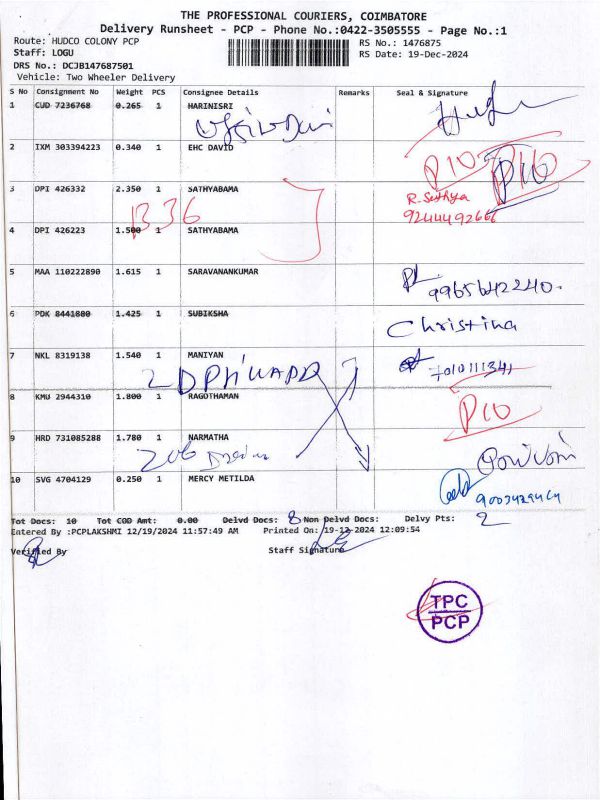 THE PROFESSIONAL COURIERS, COIMBATORE
Delivery Runsheet - PCP - Phone No.:0422-3505555 - Page No.:1
Route: HUDCO COLONY PCP
Staff: LOGU
DRS No.: DCJB147687501
Vehicle: Two Wheeler Delivery
RS No.: 1476875
RS Date: 19-Dec-2024
S No Consignment No Weight PCS Consignee Details Remarks Seal & Signature
1 CUD 7236768 0.265 1 HARINISRI
2 IXM 303394223 0.340 1 EHC DAVID
P10 P10
3 DPI 426332 2.350 1 SATHYABAMA
R. Sathya
9244492666
B 36
4 DPI 426223 1.500 1 SATHYABAMA
5 MAA 110222890 1.615 1 SARAVANANKUMAR
9965642240.
6 PDK 8441800 1.425 1 SUBIKSHA
Christina
7 NKL 8319138 1.540 1 MANIYAN
7010111341
8 KMU 2944310 1.800 1 RAGOTHAMAN
P10
9 HRD 731085288 1.780 1 NARMATHA
10 SVG 4704129 0.250 1 MERCY METILDA
Tot Docs: 10 Tot COD Amt: 0.00 Delvd Docs: 8 Non Delvd Docs: 2 Delvy Pts:
Entered By :PCPLAKSHMI 12/19/2024 11:57:49 AM Printed On: 19-12-2024 12:09:54
Verified By Staff Signature
TPC
PCP